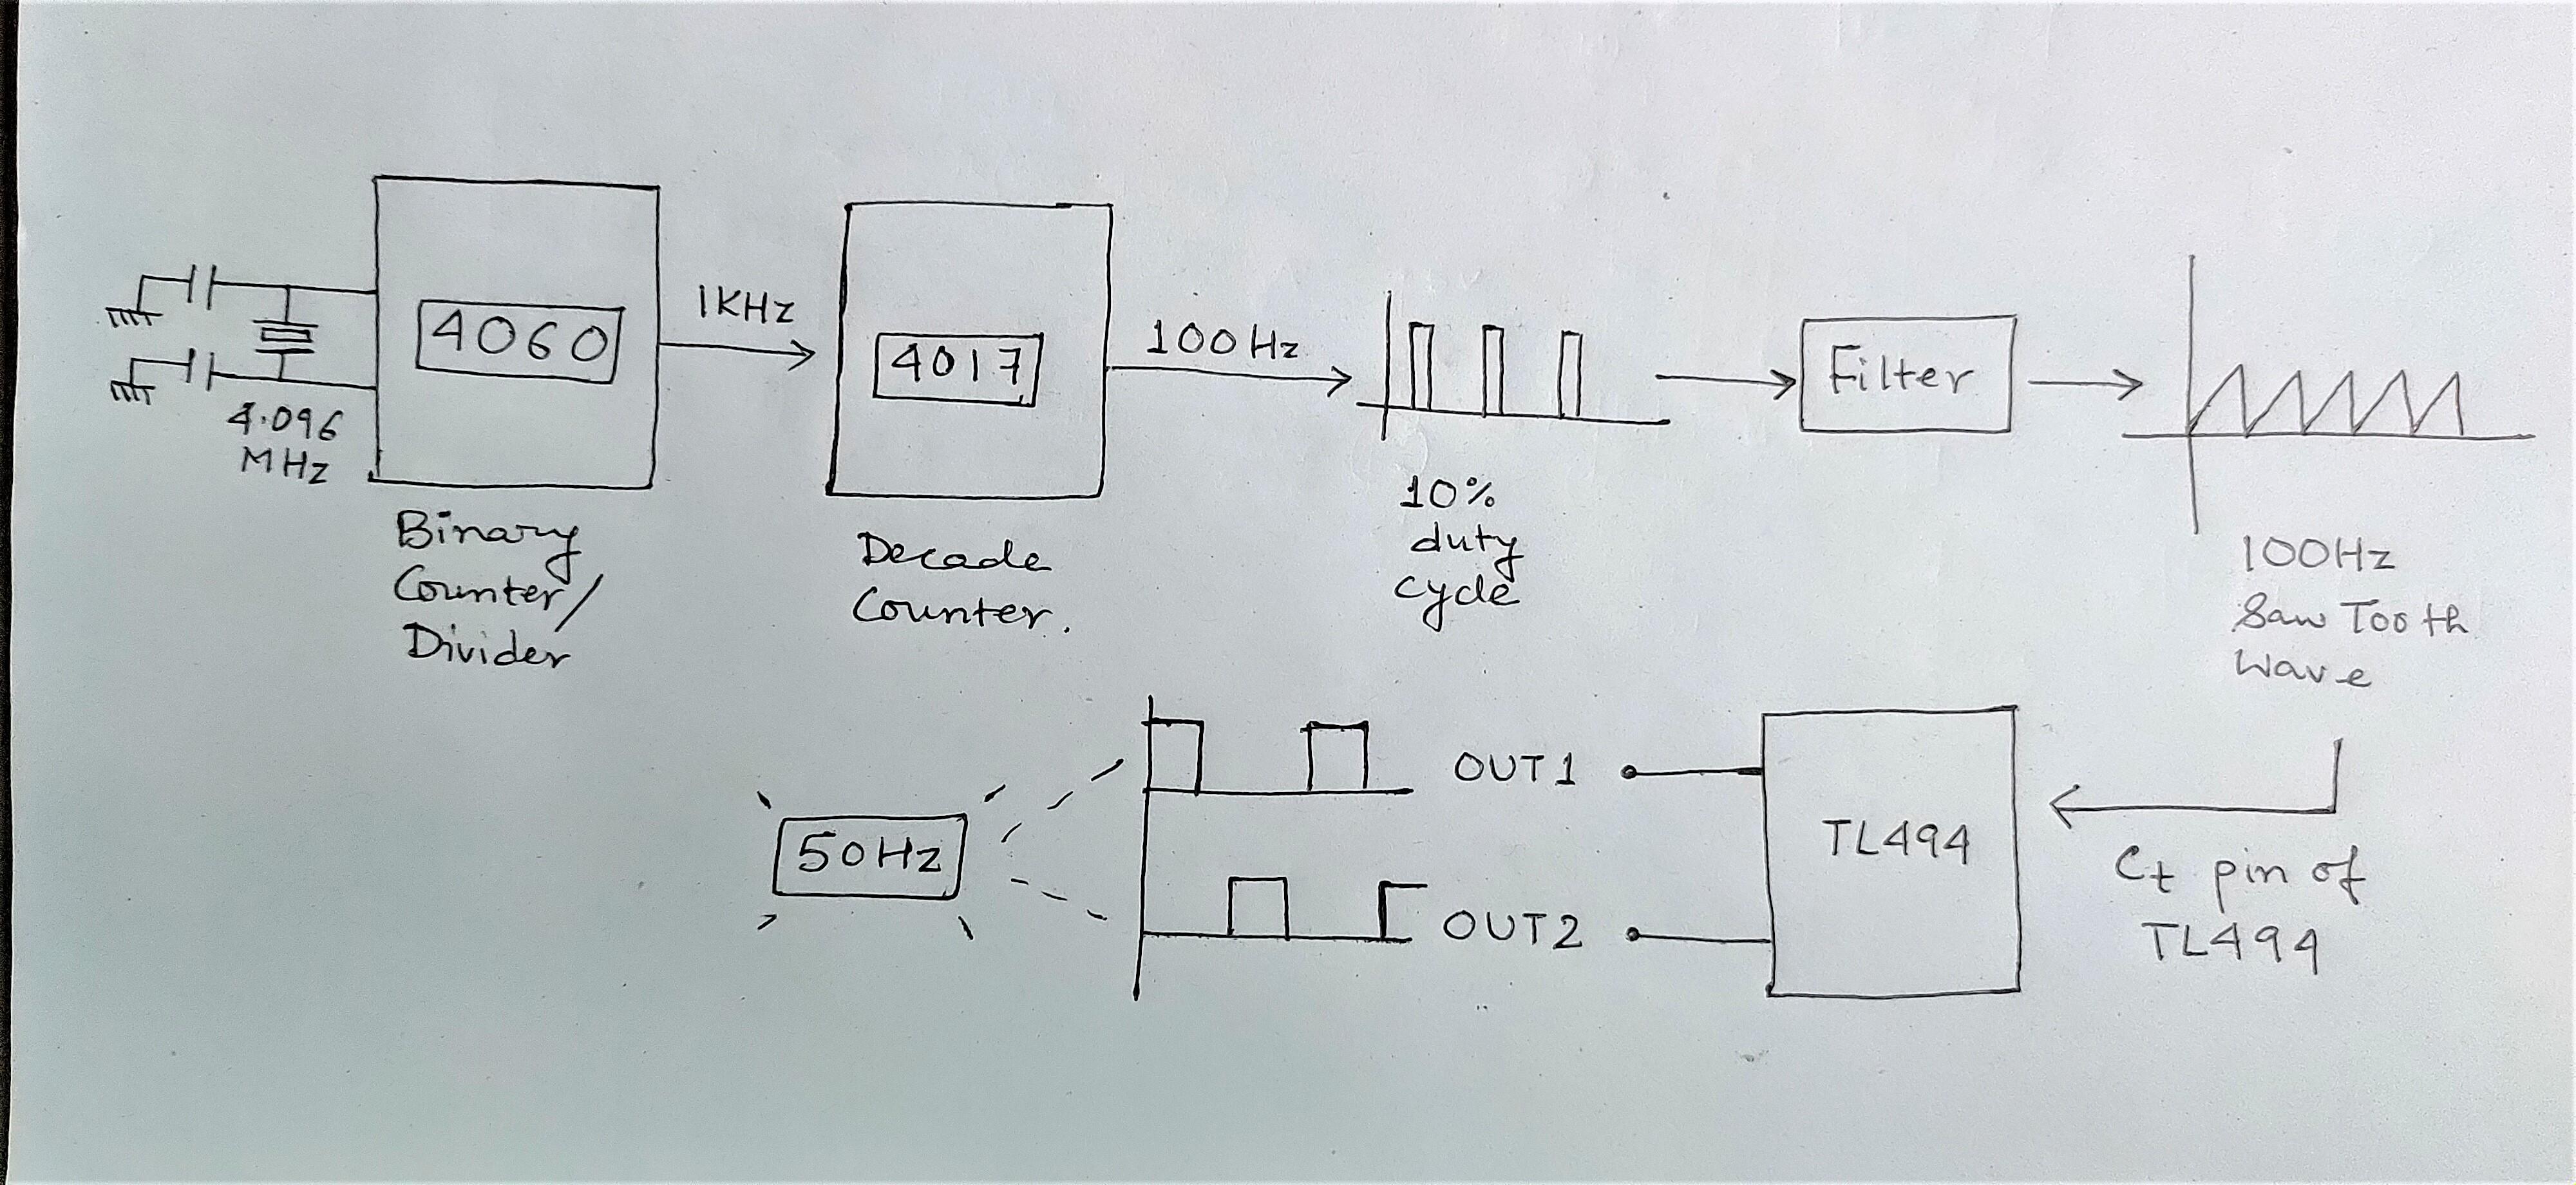 4060
4.096
MHz
Binary
Counter/
Divider
1KHz
4017
Decade
Counter.
100Hz
10%
duty
cycle
Filter
100Hz
Saw Tooth
Wave
50Hz
OUT1
OUT2
TL494
Ct pin of
TL494